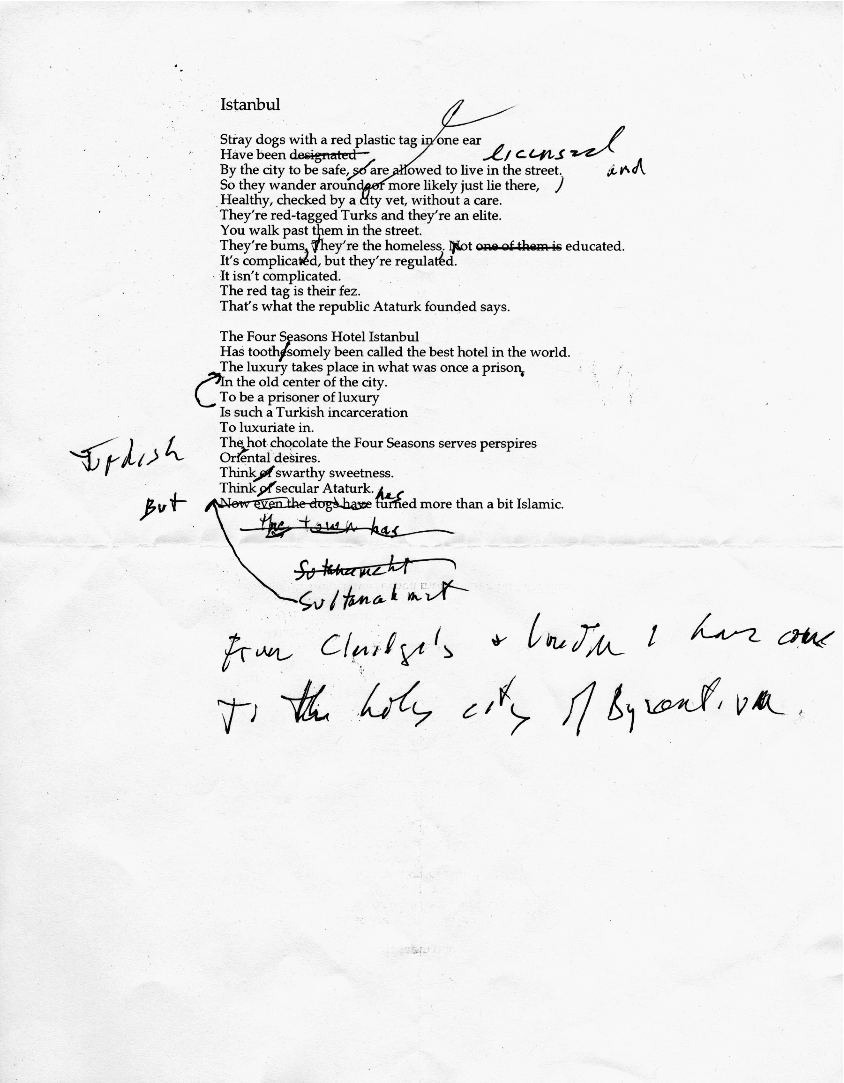 Istanbul
Stray dogs with a red plastic tag in one ear
Have been designated licensed
By the city to be safe, so are allowed to live in the street. and
So they wander around, or more likely just lie there,
Healthy, checked by a city vet, without a care.
They're red-tagged Turks and they're an elite.
You walk past them in the street.
They're bums, They're the homeless. Not one of them is educated.
It's complicated, but they're regulated.
It isn't complicated.
The red tag is their fez.
That's what the republic Ataturk founded says.
The Four Seasons Hotel Istanbul
Has toothsomely been called the best hotel in the world.
The luxury takes place in what was once a prison,
In the old center of the city.
To be a prisoner of luxury
Is such a Turkish incarceration
To luxuriate in.
The hot chocolate the Four Seasons serves perspires
Turkish
Oriental desires.
Think of swarthy sweetness.
Think of secular Ataturk.
But Now even the dogs have has turned more than a bit Islamic.
the town has
Sultanahmet
From Claridge's & London I have come
To the holy city of Byzantium.